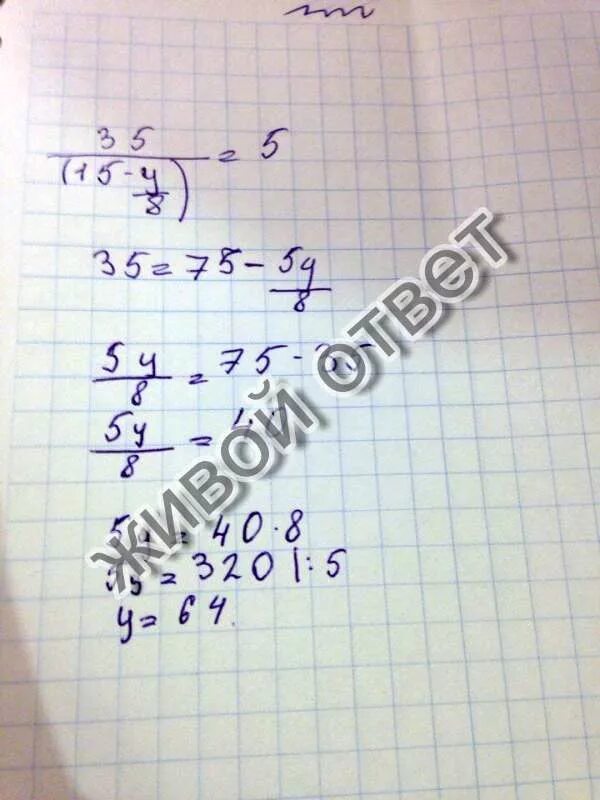 35/(15-y/8) = 5
35=75-5y/8
5y/8=75-35
5y/8=40
5y=40·8
5y=320|:5
y=64
ЖИВОЙ ОТВЕТ